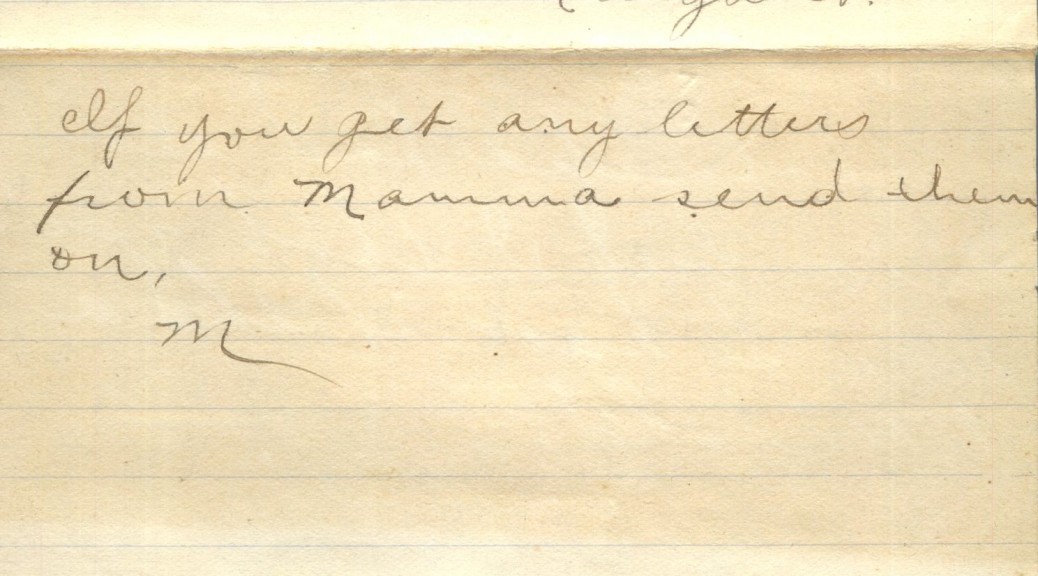 If you get any letters
from Mamma send them
on,
M